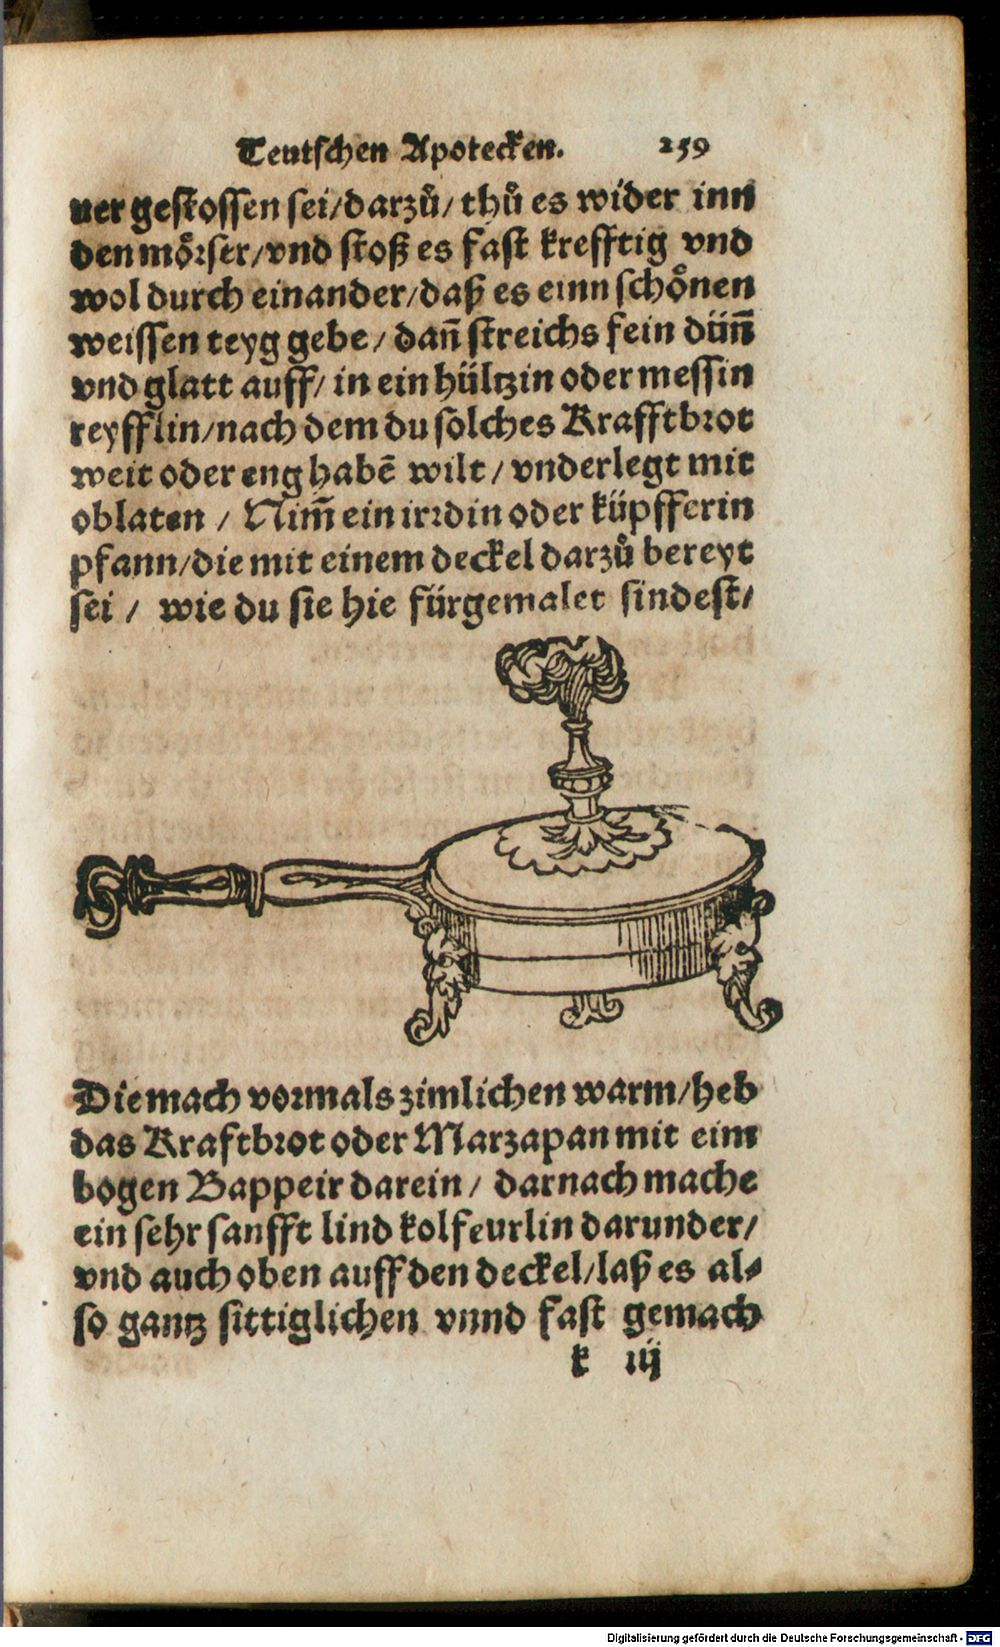 Teutschen Apotecken. 259
uer gestossen sei/darzů/thů es wider inn
den moͤrser/vnd stoß es fast krefftig vnd
wol durch einander/daß es einn schoͤnen
weissen teyg gebe/ dañ streichs fein dün̄
vnd glatt auff/ in ein hültzin oder messin
reyfflin/nach dem du solches Krafftbrot
weit oder eng habē wilt/ vnderlegt mit
oblaten / Nim̄ ein irrdin oder küpfferin
pfann/die mit einem deckel darzů bereyt
sei / wie du sie hie fürgemalet findest/
Die mach vormals zimlichen warm/heb
das Kraftbrot oder Marzapan mit eim
bogen Bappeir darein/ darnach mache
ein sehr sanfft lind kolfeurlin darunder/
vnd auch oben auff den deckel/laß es al⸗
so gantz sittiglichen vnnd fast gemach
k iij
Digitalisierung gefördert durch die Deutsche Forschungsgemeinschaft - DFG